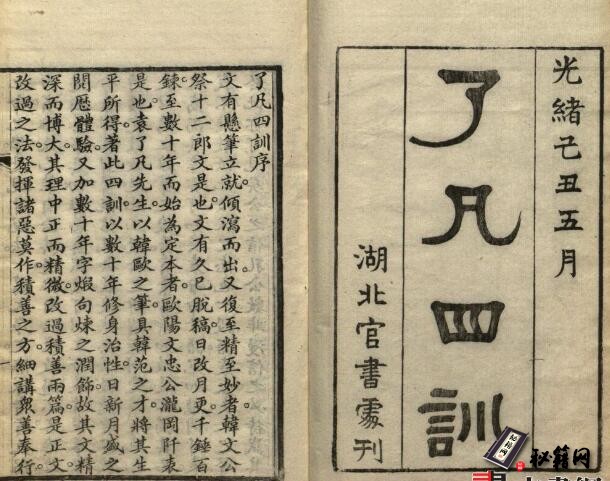 光緒己丑五月
了凡四訓
湖北官書處刊
了凡四訓序
文有懸筆立就。傾瀉而出。又復至精至妙者。韓文公
祭十二郎文是也。文有久已脫稿。日改月更。千錘百
鍊。至數十年而始為定本者。歐陽文忠公瀧岡阡表
是也。袁了凡先生。以韓歐之筆。具韓范之才。將其生
平所得。著此四訓。以數十年修身治性。日新月盛之
閱歷體驗。又加數十年字煅句煉之潤飾。故其文精
深而博大。其理中正而精微。改過積善兩篇。是正文
改過之法。發揮諸惡莫作。積善之方。細講眾善奉行。
秘籍网